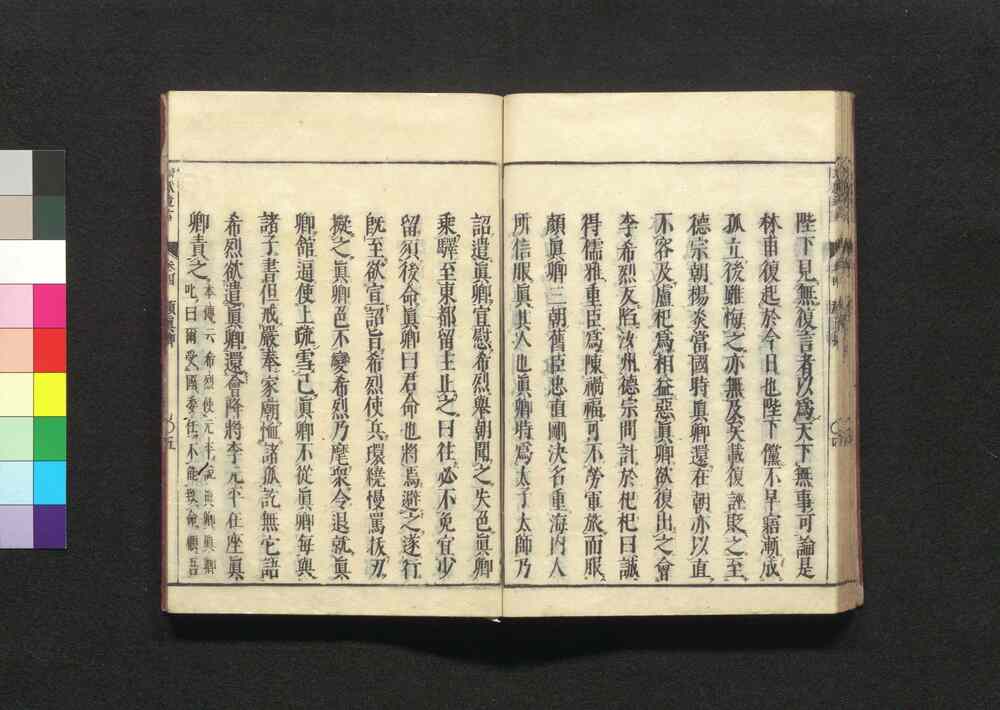 陛下見無復言者以爲天下無事可論是
林甫復起於今日也陛下儻不早寤漸成
孤立後雖悔之亦無及矣載復誣貶之至
德宗朝楊炎當國時眞卿還在朝亦以直
不容及盧杞爲相益惡眞卿欲復出之會
李希烈反陷汝州德宗問計於杞杞曰誠
得儒雅重臣爲陳禍福可不勞軍旅而服
顔眞卿三朝舊臣忠直剛決名重海內人
所信服眞其人也眞卿時爲太子太師乃
詔遣眞卿宣慰希烈舉朝聞之失色眞卿
乘驛至東都留主止之曰往必不免宜少
留須後命眞卿曰君命也將焉避之遂行
旣至欲宣詔旨希烈使兵環繞慢罵拔刃
擬之眞卿色不變希烈乃麾衆令退就眞
卿館逼使上疏雪己眞卿不從眞卿每與
諸子書但戒嚴奉家廟恤諸孤訖無它語
希烈欲遣眞卿還會降將李元平在座眞
卿責之
本傳云希烈使元平說眞卿眞卿
叱曰爾受國委任不能致命顧吾
卷四
顔眞卿
五